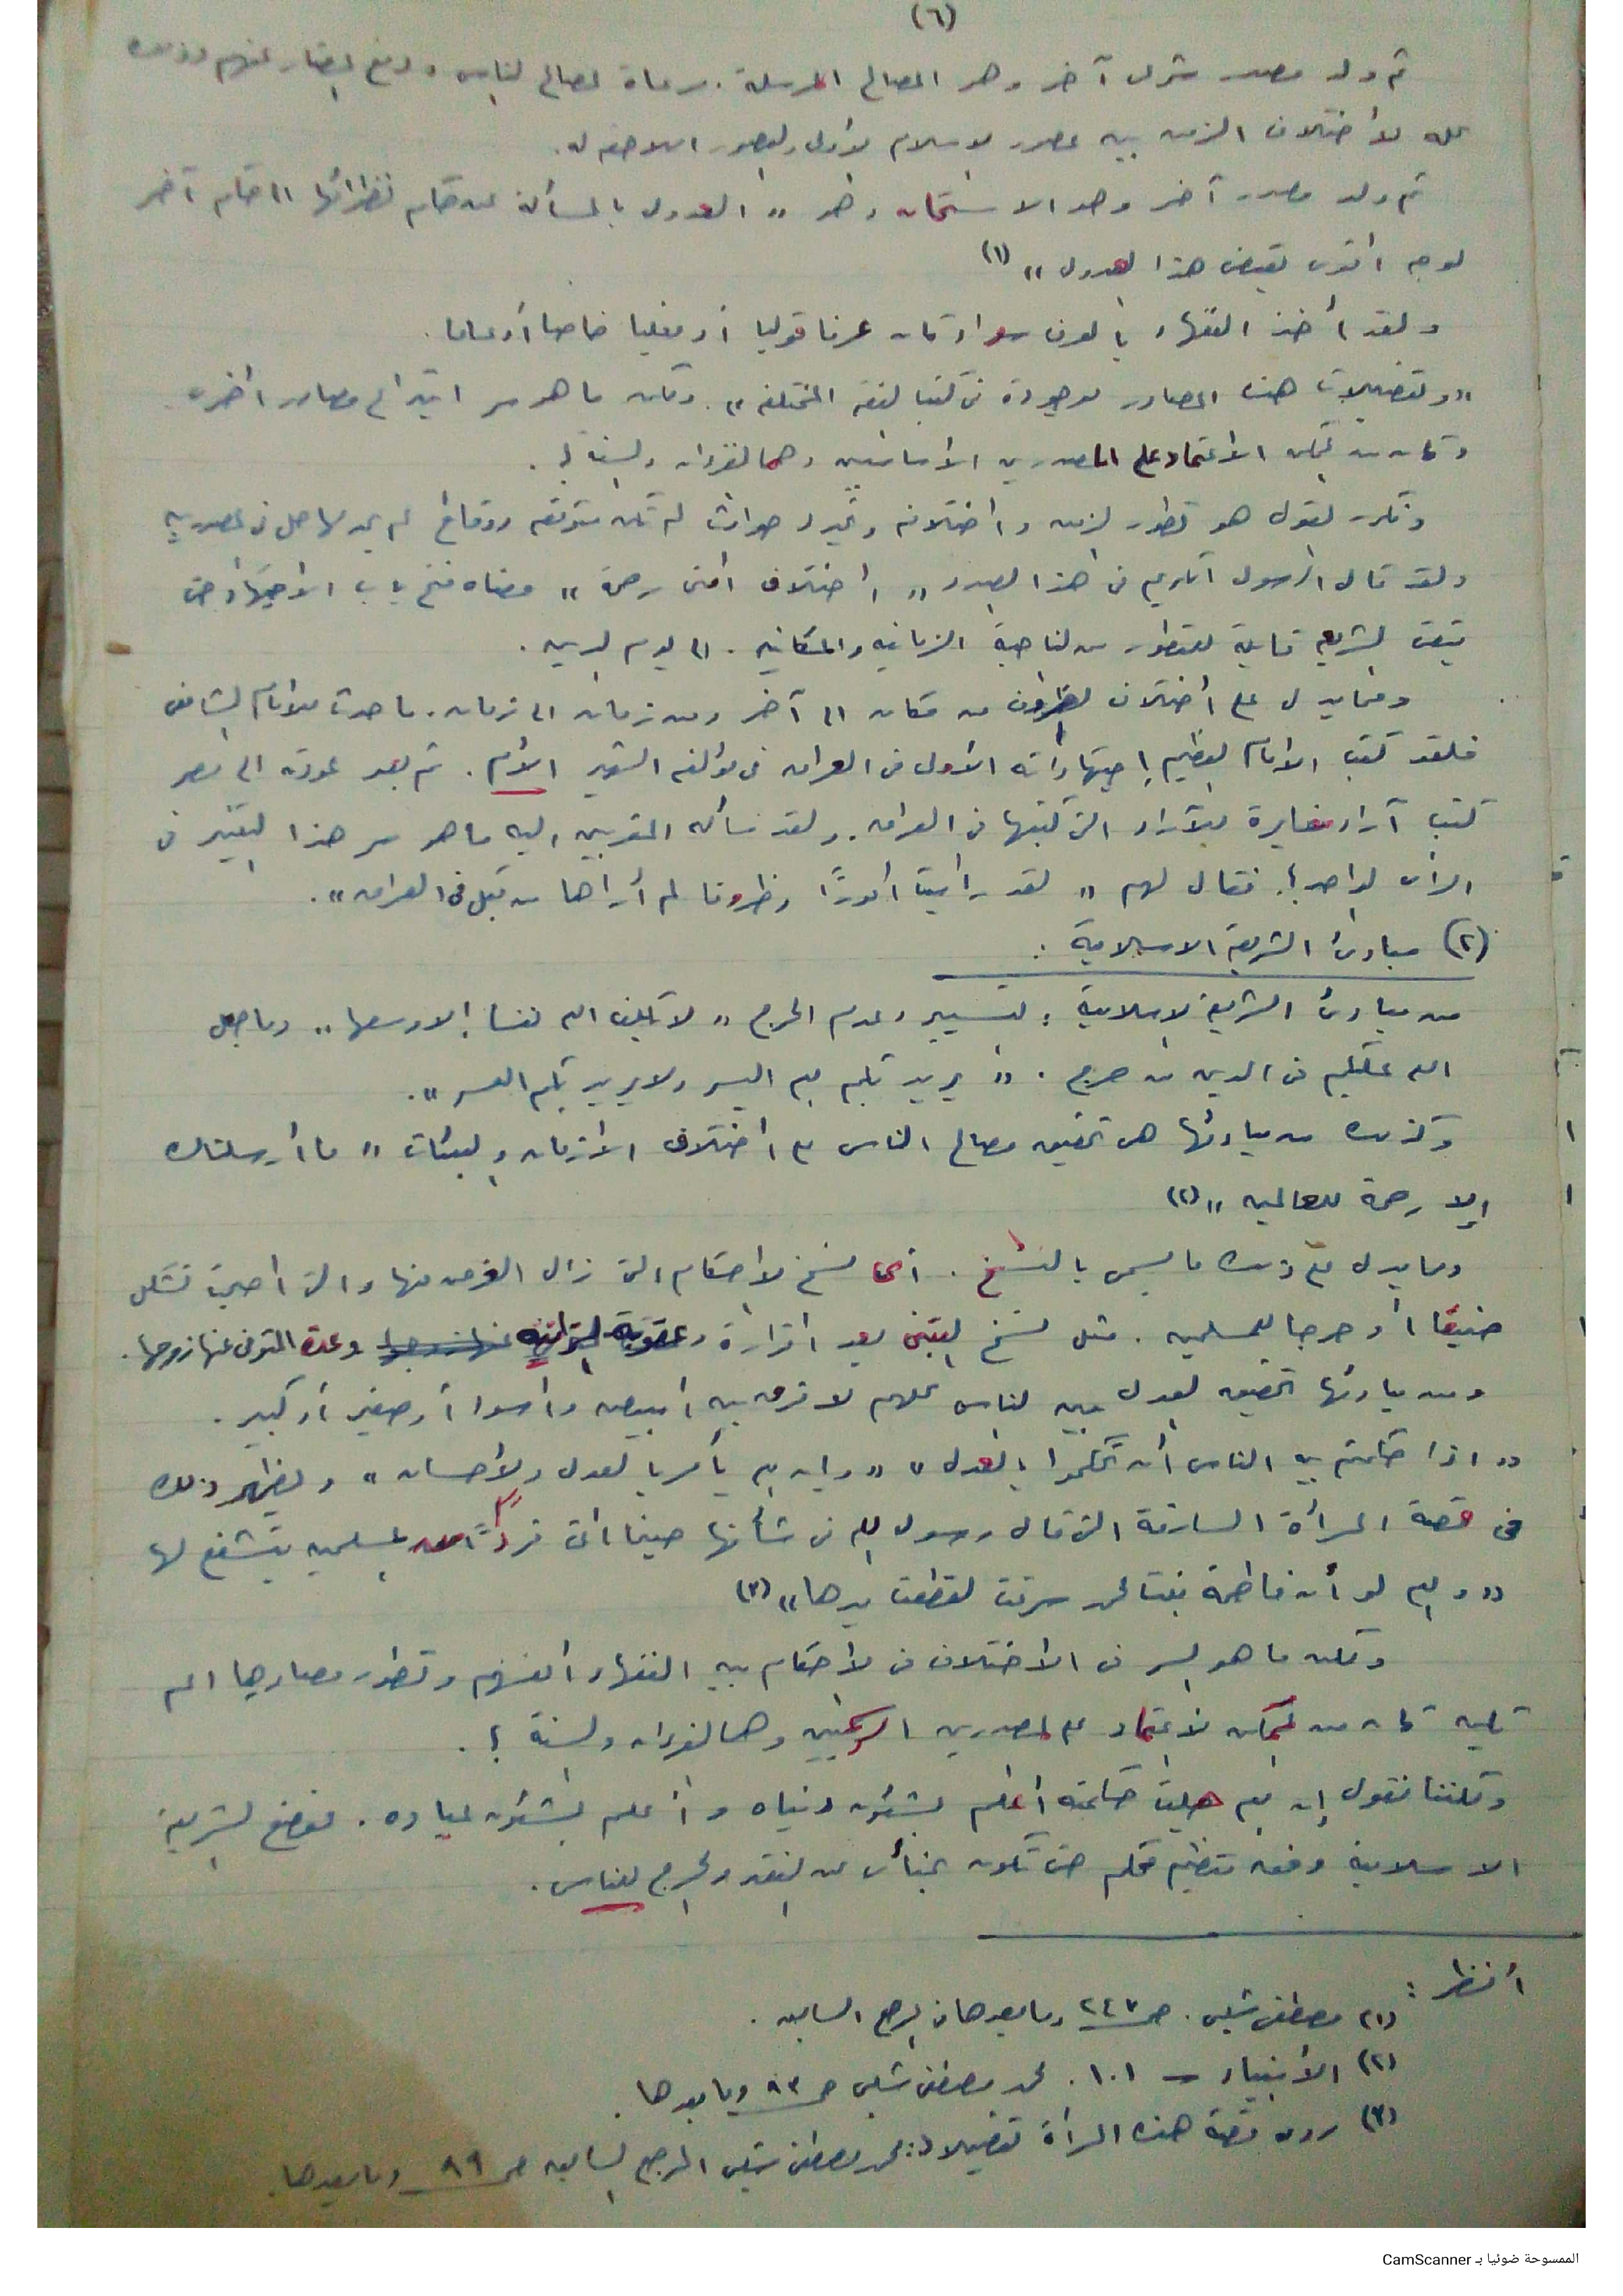 (٦)
ثم ولد مصدر شرعى آخر وهو المصالح المرسلة. مراعاة لمصالح الناس ودفع المضار عنهم وذلك
كله لاختلاف الزمن بين عصور الاسلام الأولى والعصور اللاحقه له.
ثم ولد مصدر آخر وهو الاستحسان وهو " العدول بالمسألة عن حكم نظرائها الى حكم آخر
لوجه اقوى يقتضى هذا العدول " (١)
ولقد أخذ الفقهاء بالعرف سواء كان عرفا قوليا أو فعليا خاصا أو عاما.
" وتفصيلات هذه المصادر موجودة فى كتب الفقه المختلفه ". ولكن ما هو سر ابتداع مصادر اخرى
وكان من الممكن الاعتماد على المصدرين الأساسيين وهما القرآن والسنة؟.
ونكرر القول هو تطور الزمن واختلافه وتجدد حوادث لم تكن متوقعه ووقائع لم يجد لها حل فى المصدرين
ولقد قال الرسول الكريم فى هذا الصدد " اختلاف امتى رحمة " معناه فتح باب الاجتهاد حتى
تبقى الشريعه قابلة للتطور من الناحية الزمانيه والمكانيه. الى يوم الدين.
ومما يدل على أختلاف الظروف من مكان الى آخر ومن زمان الى زمان. ما حدث للامام الشافعى
فلقد كتب الامام العظيم إجتهاداته الأولى فى العراق فى مؤلفه الشهير الأم. ثم بعد عودته الى مصر
كتب آراء مغايرة للآراء التى كتبها فى العراق. ولقد سأله المقربين اليه ما هو سر هذا التغير فى
الرأى الواحد؟. فقال لهم " لقد رأيت أمورًا وظروفا لم أراها من قبل فى العراق ".
(٢) مبادئ الشريعة الاسلامية :
من مبادئ الشريعة الاسلامية : التيسير وعدم الحرج " لا يكلف الله نفسا إلا وسعها " وما جعل
الله عليكم فى الدين من حرج. " يريد بكم الله اليسر ولا يريد بكم العسر ".
وكذلك من مبادئها هى تحقيق مصالح الناس مع أختلاف الأزمان والبيئات " ما أرسلناك
إلا رحمة للعالمين " (٢)
ومما يدل على ذلك ما يسمى بالنسخ. أى نسخ الاحكام التى زال الغرض منها والتى اصبحت تشكل
ضيقا أو حرجا للمسلمين. مثل نسخ التبنى بعد اقرارة وعقوبة الزانيه وعدة المتوفى عنها زوجها.
ومن مبادئها تحقيق العدل بين الناس كلهم لا فرق بين أبيض وأسود أو صغير أو كبير.
" اذا حكمتم بين الناس أن تحكموا بالعدل " " وإن الله يأمر بالعدل والاحسان " ويظهر ذلك
فى قصة المرأة السارقة التى قال رسول الله فى شأنها حينما اتى فردًا من المسلمين يتشفع لها
" والله لو أن فاطمة بنت محمد سرقت لقطعت يدها " (٣)
ولكن ما هو السر فى الاختلاف فى الاحكام بين الفقهاء انفسهم وتطور مصادرها الم
يكن كان من الممكن الاعتماد على المصدرين الرئيسيين وهما القرآن والسنة؟.
ولكننا نقول إن الله جلت حكمته اعلم بشئون دنياه وأعلم بشئون عباده. فوضع الشريعة
الاسلامية وفق تنظيم محكم حتى تكون بمنأى عن النقد والحرج للناس.
أنظر :
(١) مصطفى شلبى. ص ٢٤٧ وما بعدها فى المرجع السابق.
(٢) الأنبياء - ١٠١. محمد مصطفى شلبى ص ٩٣ وما بعدها.
(٣) روى قصة هذه المرأة تفصيلا: محمد مصطفى شلبى المرجع السابق ص ٨٩ وما بعدها.
الممسوحة ضوئيا بـ CamScanner